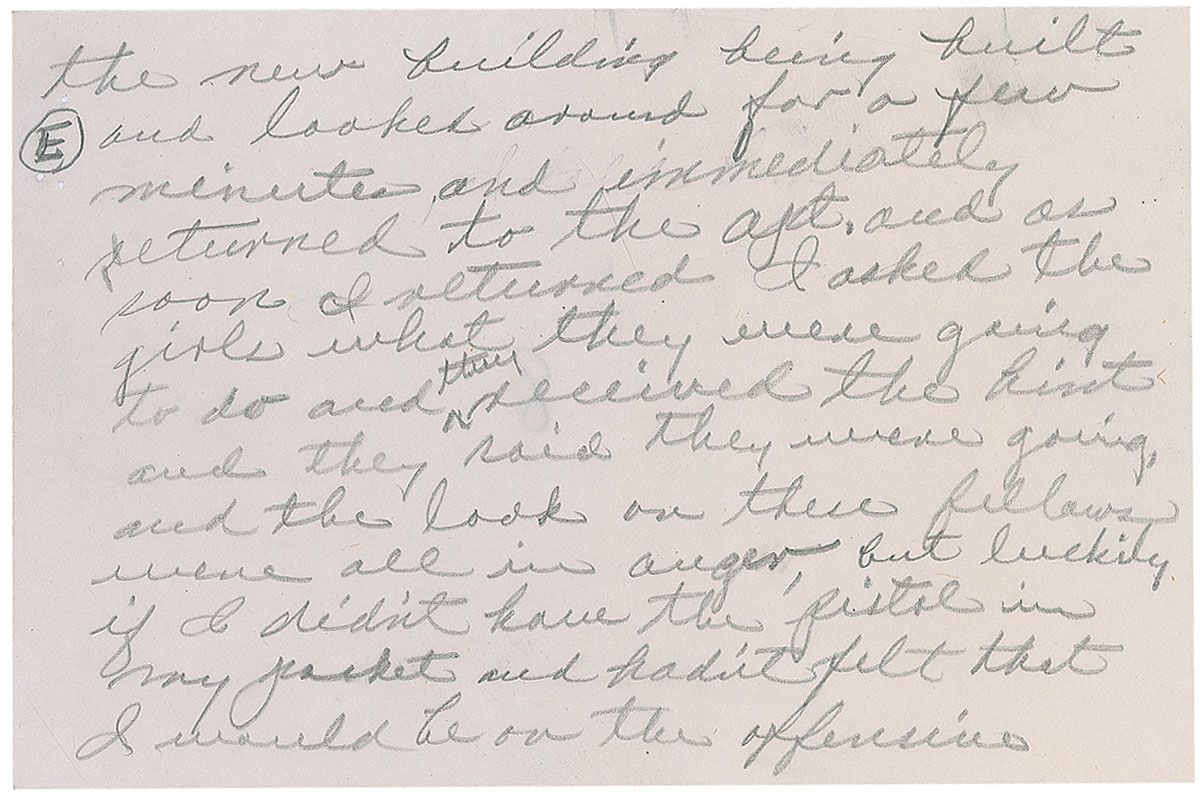 the new building being built
Ⓔ and looked around for a few
minutes and immediately
returned to the apt. and as
soon I returned I asked the
girls what they were going
to do and they received the hint
and they said they were going,
and the look on these fellows
were all in anger, but luckily
if I didn't have the pistol in
my pocket and hadn't felt that
I would be on the offensive